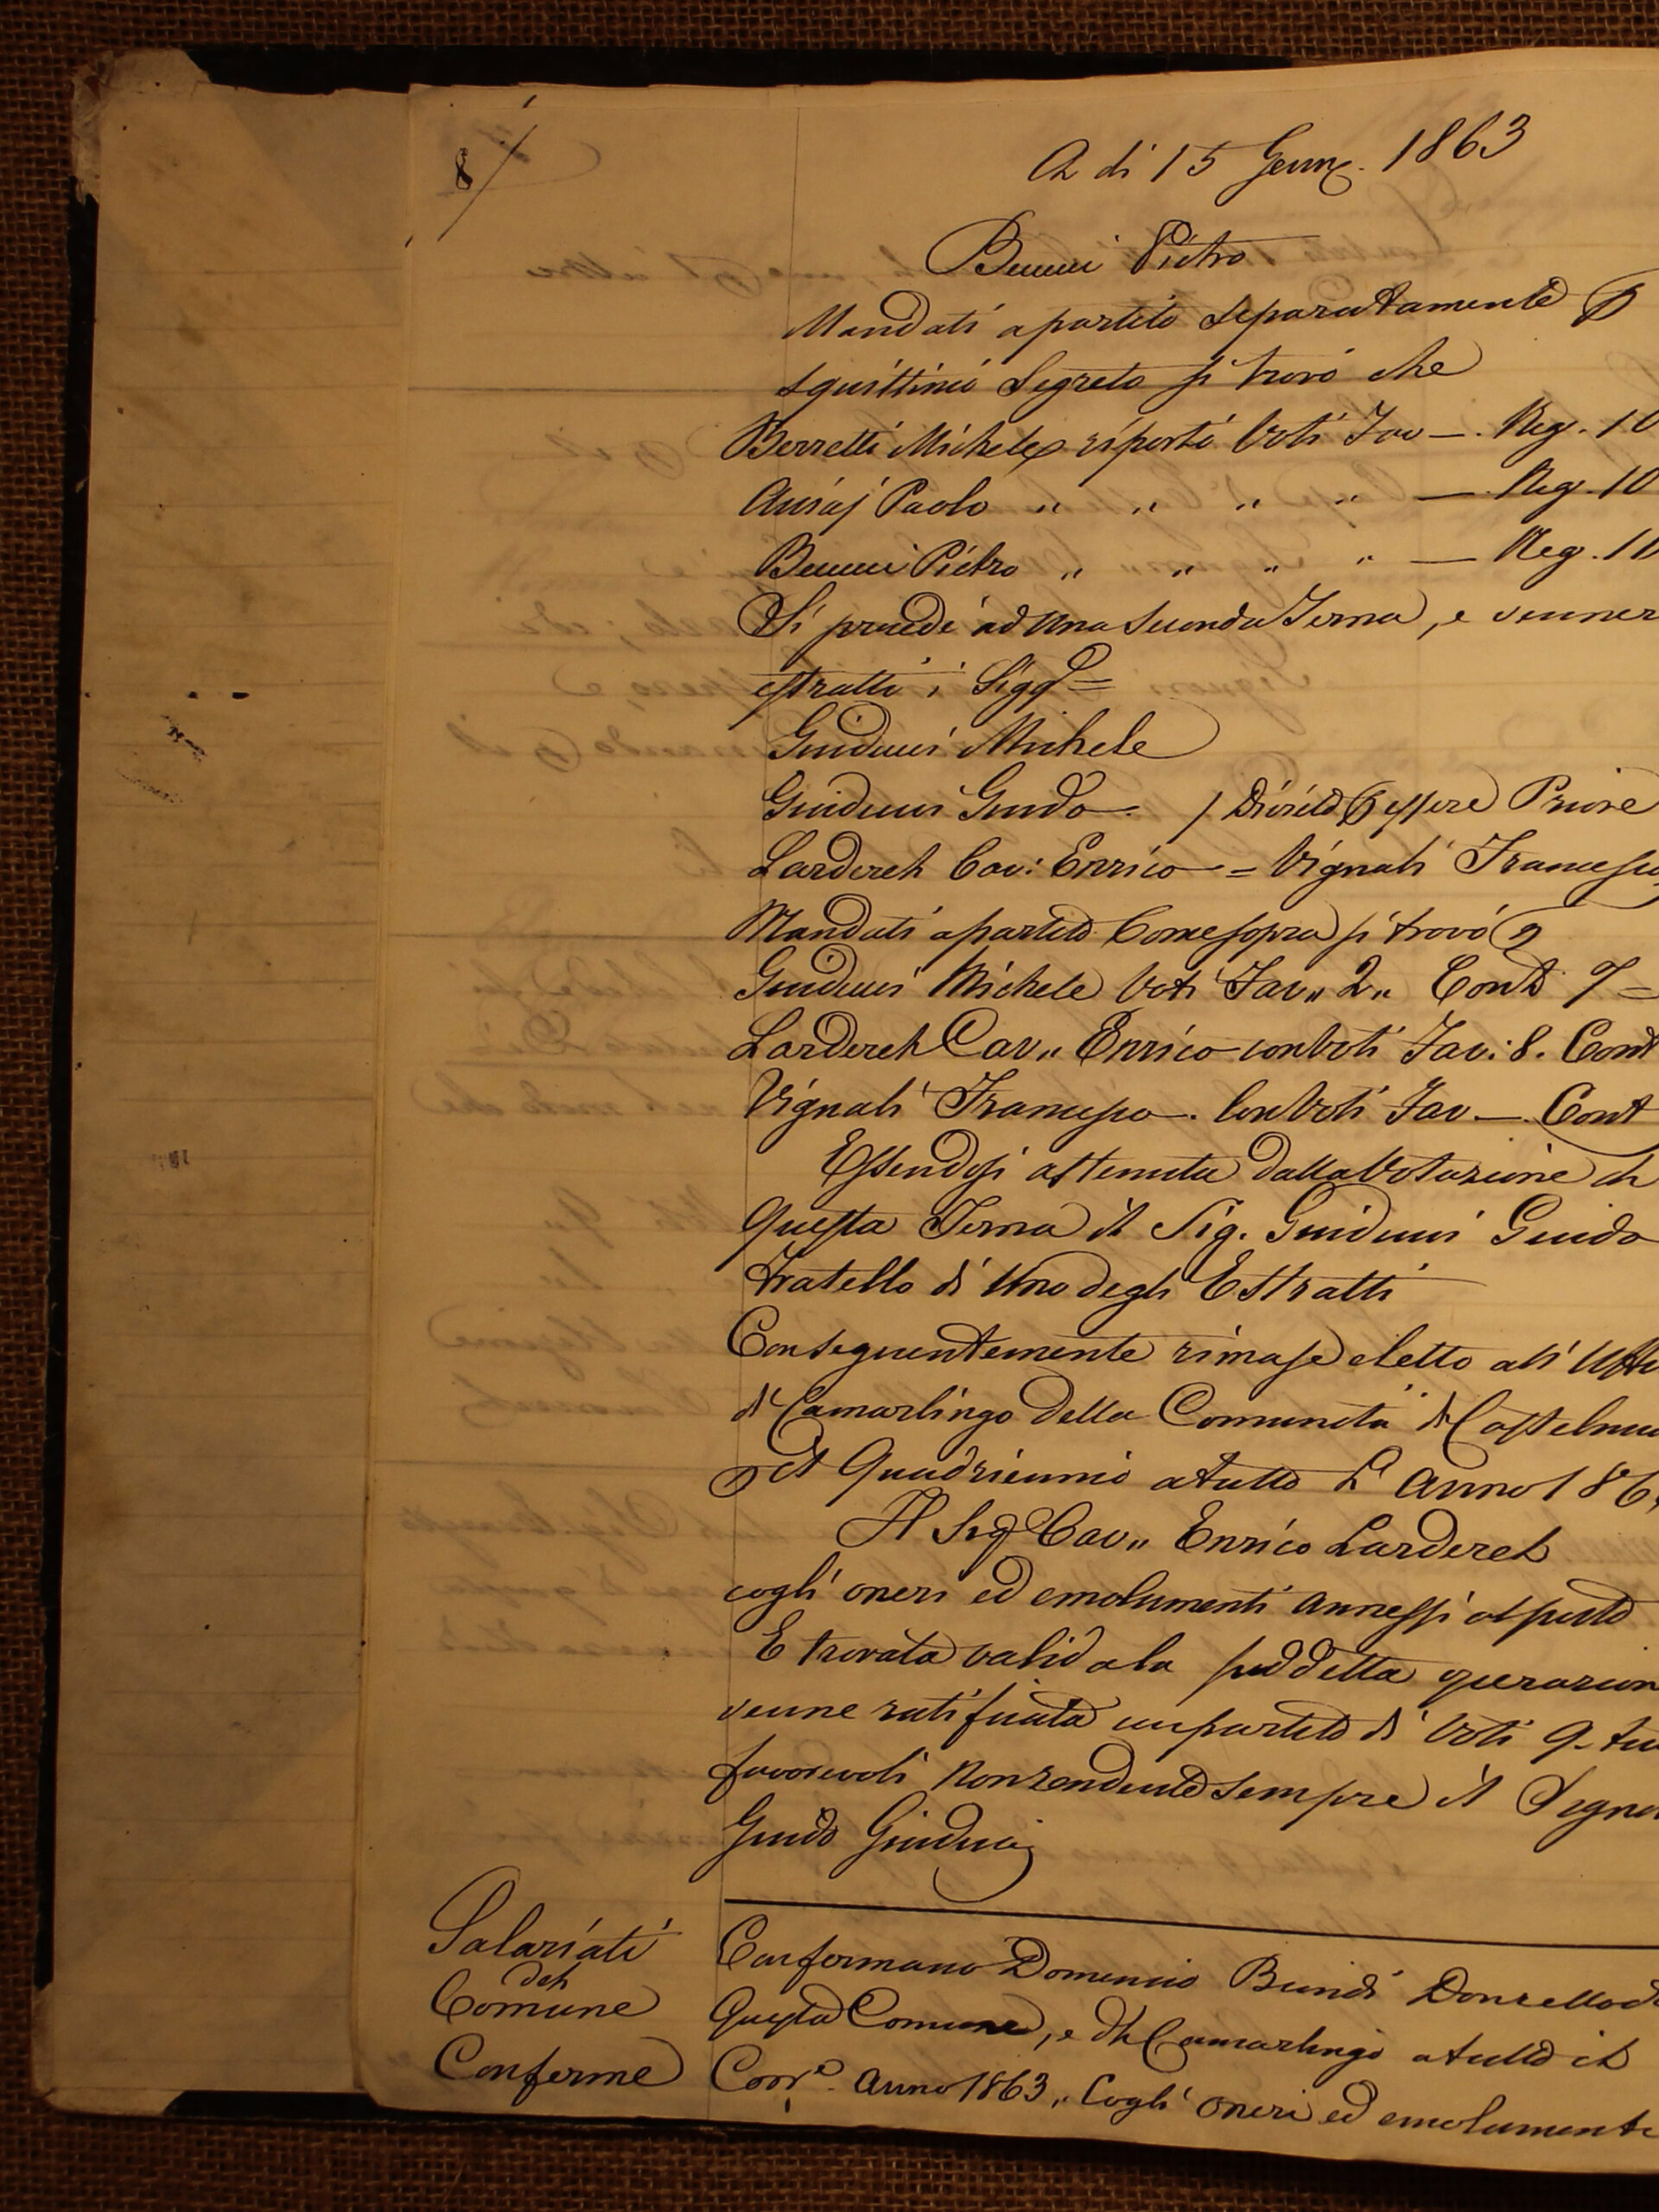 8
A di 15 Genn. 1863
Bucci Pietro
Mandati a partito separatamente p
squittinio Segreto si trovò che
Berretti Michele riportò Voti Fav — Neg. 10
Paolo " " " " — Neg. 10
Bucci Pietro " " " " — Neg. 10
Si procedé ad una Seconda Terna, e venner
estratti i Sigg.ri =
Guiducci Michele
Guiducci Guido — / Divieto p essere Priore
Larderel Cav: Enrico = Vignali Francesco
Mandati a partito Come sopra si trovò
Guiducci Michele Voti Fav„ 2„ Cont 7 =
Larderel Cav„ Enrico con Voti Fav: 8. Cont
Vignali Francesco. Con Voti Fav — Cont
Essendosi astenuto dalla Votazione di
questa Terna il Sig. Guiducci Guido
Fratello di Uno degli Estratti
Conseguentemente rimase eletto all'
di Camarlingo della Comunità di Castelnuo
p il Quadriennio a tutto L'anno 186
Il Sig Cav„ Enrico Larderel
cogli oneri ed emolumenti annessi al posto
E trovata valida la suddetta operazion
venne ratificata con partito di Voti 9. tu
favorevoli non rendente sempre il Signor
Guido Guiducci
Salariati
del
Comune
Conferme
Confermano Domenico Bundi Donzello di
Questa Comune, e del Camarlingo a tutto il
Corr.e anno 1863„ Cogli oneri ed emolumenti